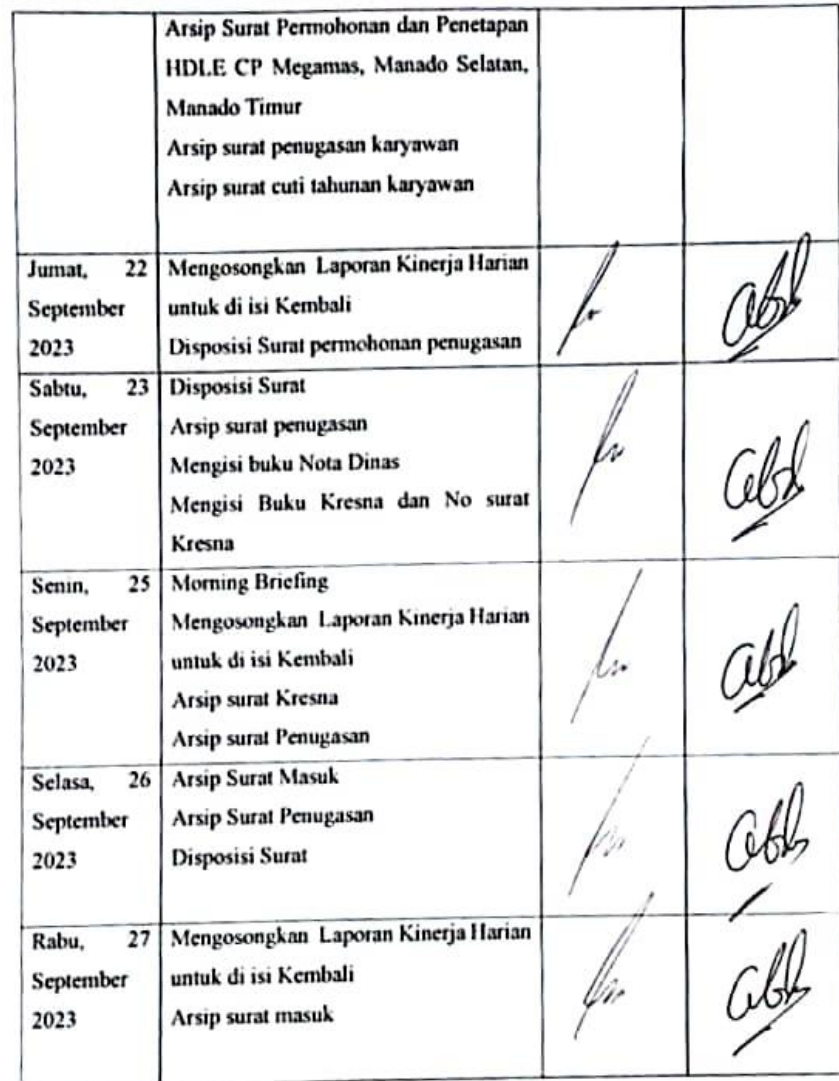 Arsip Surat Permohonan dan Penetapan
HDLE CP Megamas, Manado Selatan,
Manado Timur
Arsip surat penugasan karyawan
Arsip surat cuti tahunan karyawan
Jumat, 22
September
2023
Mengosongkan Laporan Kinerja Harian
untuk di isi Kembali
Disposisi Surat permohonan penugasan
Sabtu, 23
September
2023
Disposisi Surat
Arsip surat penugasan
Mengisi buku Nota Dinas
Mengisi Buku Kresna dan No surat
Kresna
Senin, 25
September
2023
Morning Briefing
Mengosongkan Laporan Kinerja Harian
untuk di isi Kembali
Arsip surat Kresna
Arsip surat Penugasan
Selasa, 26
September
2023
Arsip Surat Masuk
Arsip Surat Penugasan
Disposisi Surat
Rabu, 27
September
2023
Mengosongkan Laporan Kinerja Harian
untuk di isi Kembali
Arsip surat masuk